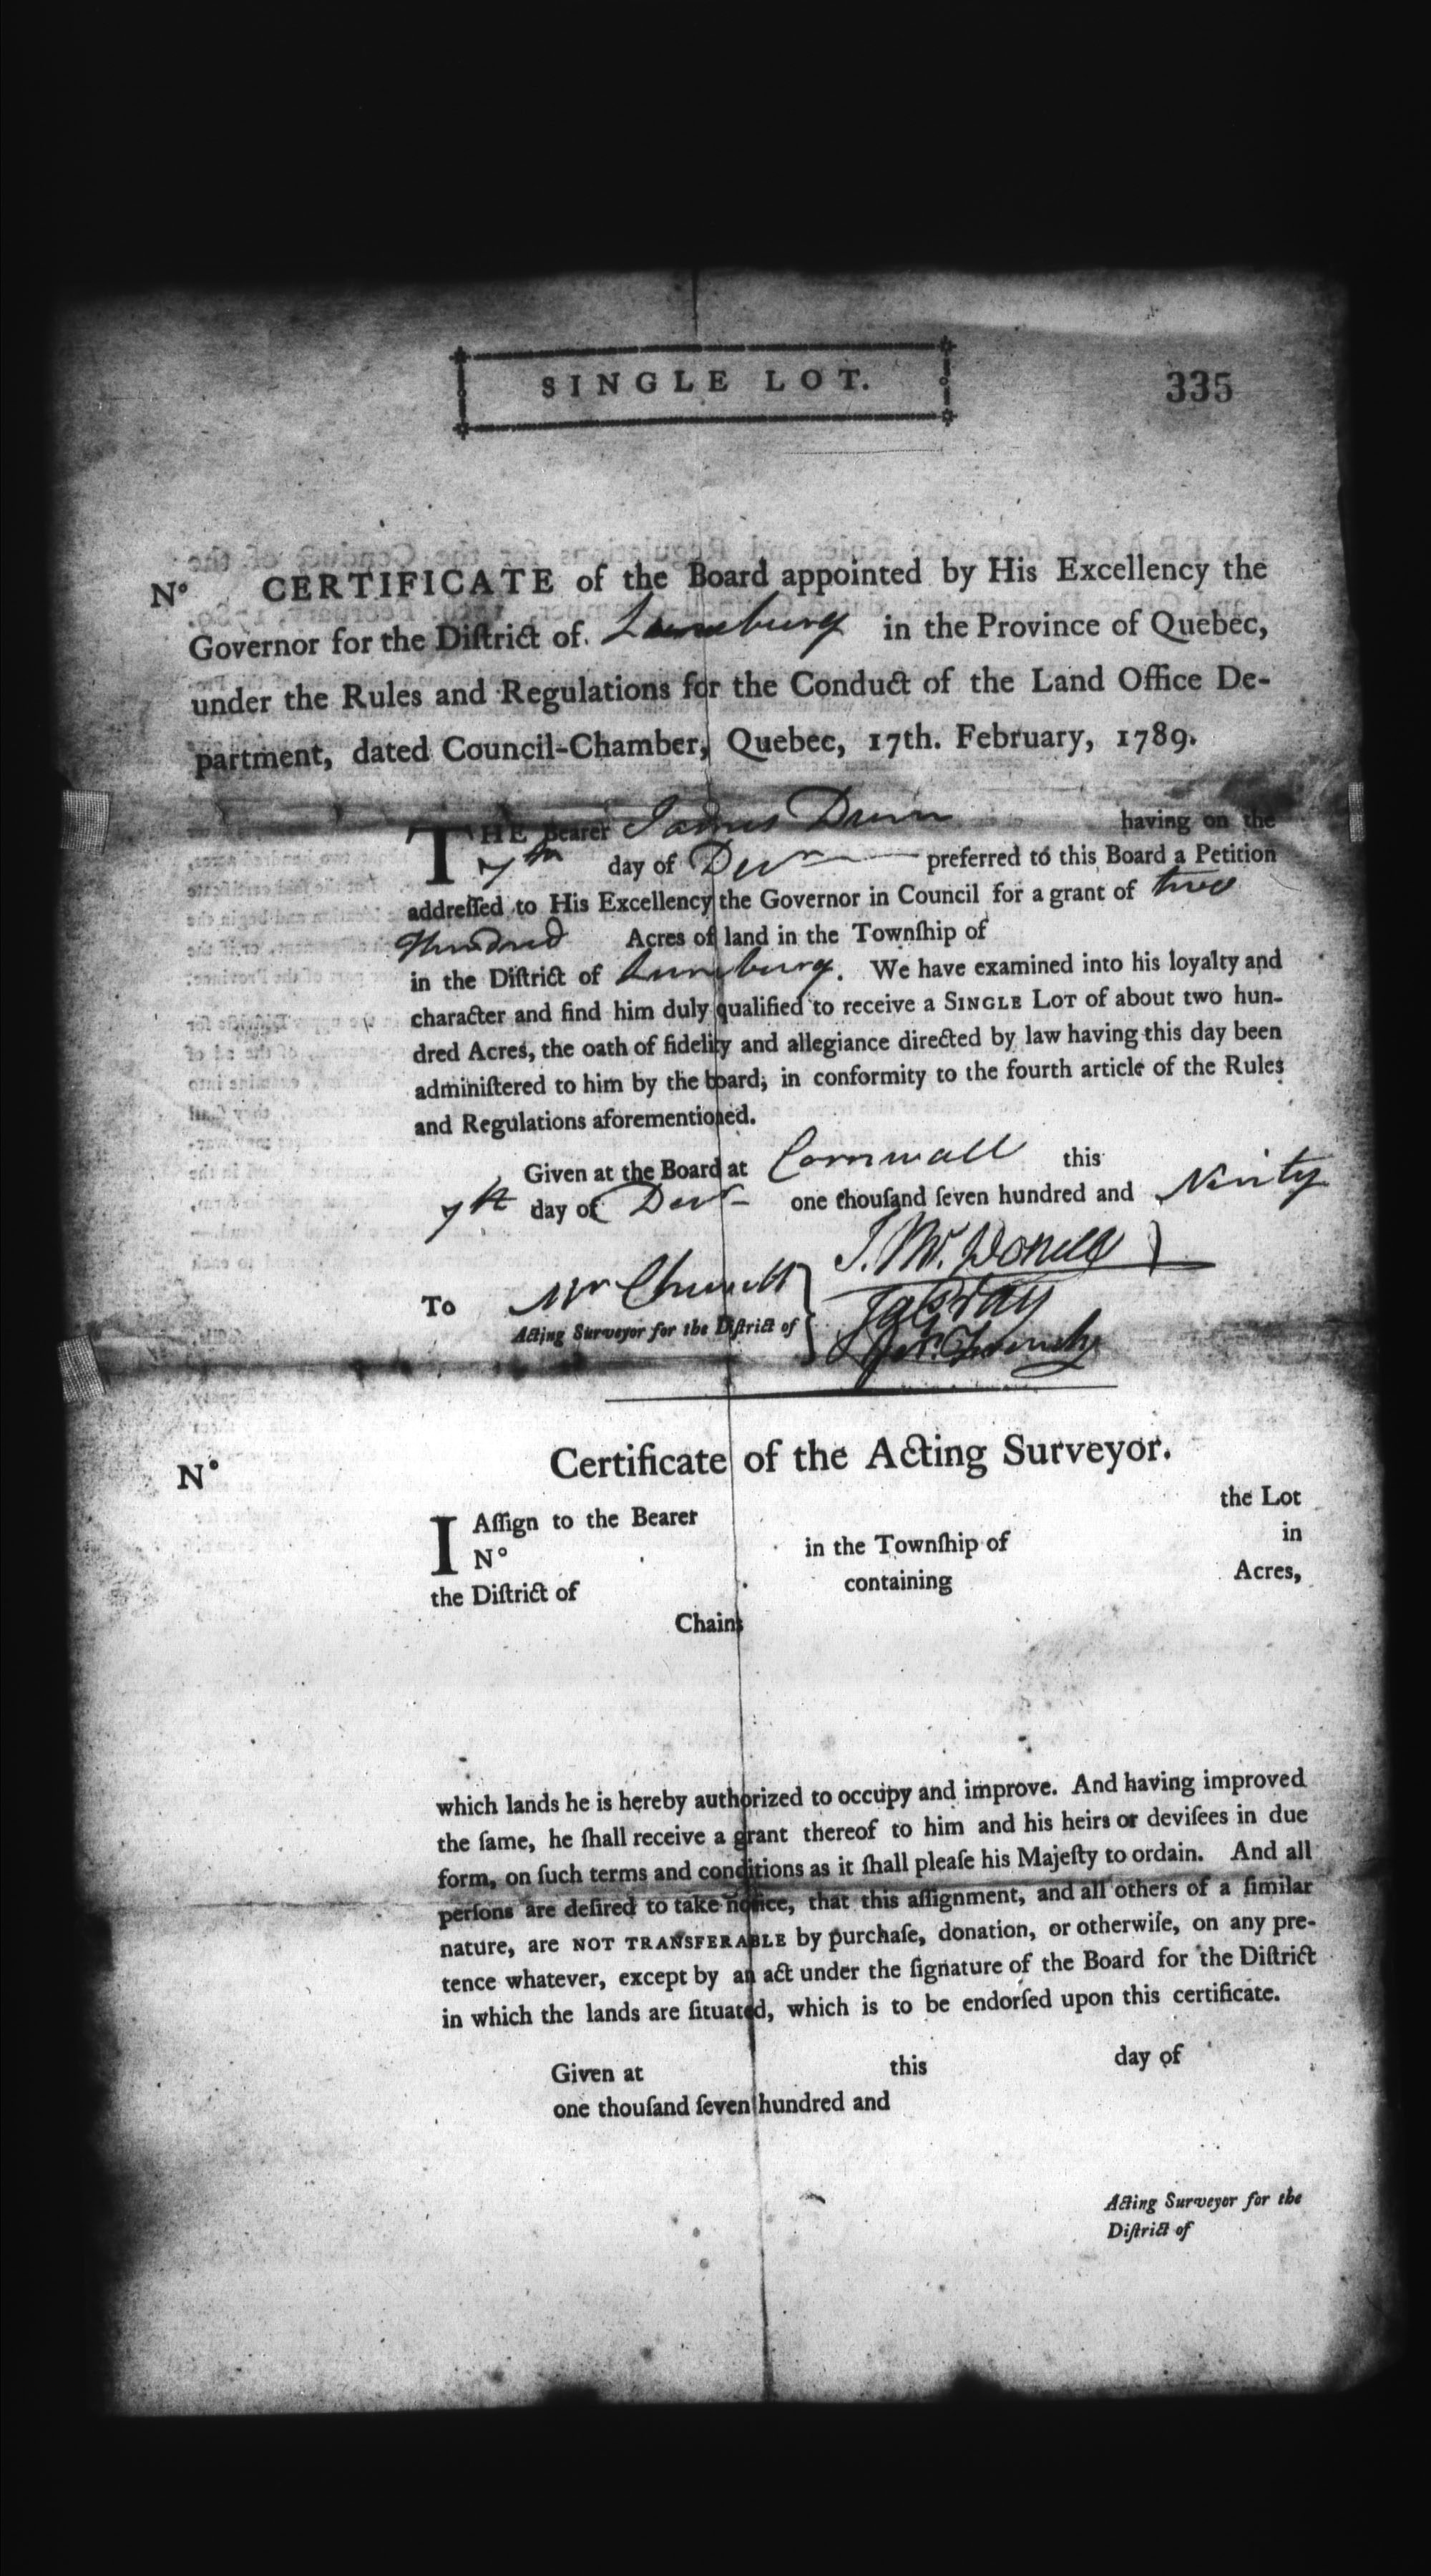 SINGLE LOT.
335
N° CERTIFICATE of the Board appointed by His Excellency the
Governor for the Diſtrict of Luneburg in the Province of Quebec,
under the Rules and Regulations for the Conduct of the Land Office De-
partment, dated Council-Chamber, Quebec, 17th. February, 1789.
THE Bearer James Dunn having on the
7th day of Decr preferred to this Board a Petition
addreſſed to His Excellency the Governor in Council for a grant of two
Hundred Acres of land in the Townſhip of
in the Diſtrict of Luneburg. We have examined into his loyalty and
character and find him duly qualified to receive a SINGLE LOT of about two hun-
dred Acres, the oath of fidelity and allegiance directed by law having this day been
adminiſtered to him by the board; in conformity to the fourth article of the Rules
and Regulations aforementioned.
Given at the Board at Cornwall this
7th day of Decr one thouſand ſeven hundred and Ninty
J. McDonell
To Mr Chewett
Acting Surveyor for the Diſtrict of
Certificate of the Acting Surveyor.
N°
I Aſſign to the Bearer the Lot
N° in the Townſhip of in
the Diſtrict of containing Acres,
Chains
which lands he is hereby authorized to occupy and improve. And having improved
the ſame, he ſhall receive a grant thereof to him and his heirs or deviſees in due
form, on ſuch terms and conditions as it ſhall pleaſe his Majeſty to ordain. And all
perſons are deſired to take notice, that this aſſignment, and all others of a ſimilar
nature, are NOT TRANSFERABLE by purchaſe, donation, or otherwiſe, on any pre-
tence whatever, except by an act under the ſignature of the Board for the Diſtrict
in which the lands are ſituated, which is to be endorſed upon this certificate.
Given at this day of
one thouſand ſeven hundred and
Acting Surveyor for the
Diſtrict of